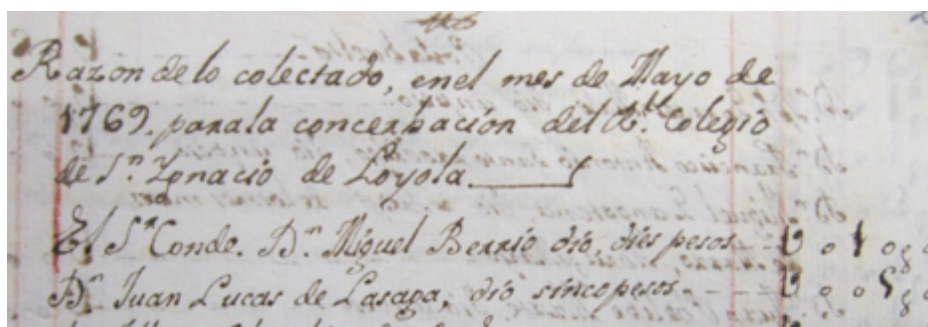 Razon de lo colectado, en el mes de Mayo de
1769. para la concerbacion del Rl. Colegio
de Sn. Ygnacio de Loyola.
El Sr. Conde. Dn. Miguel Berrio dio, dies pesos
Dn. Juan Lucas de Lasaga, dio sinco pesos